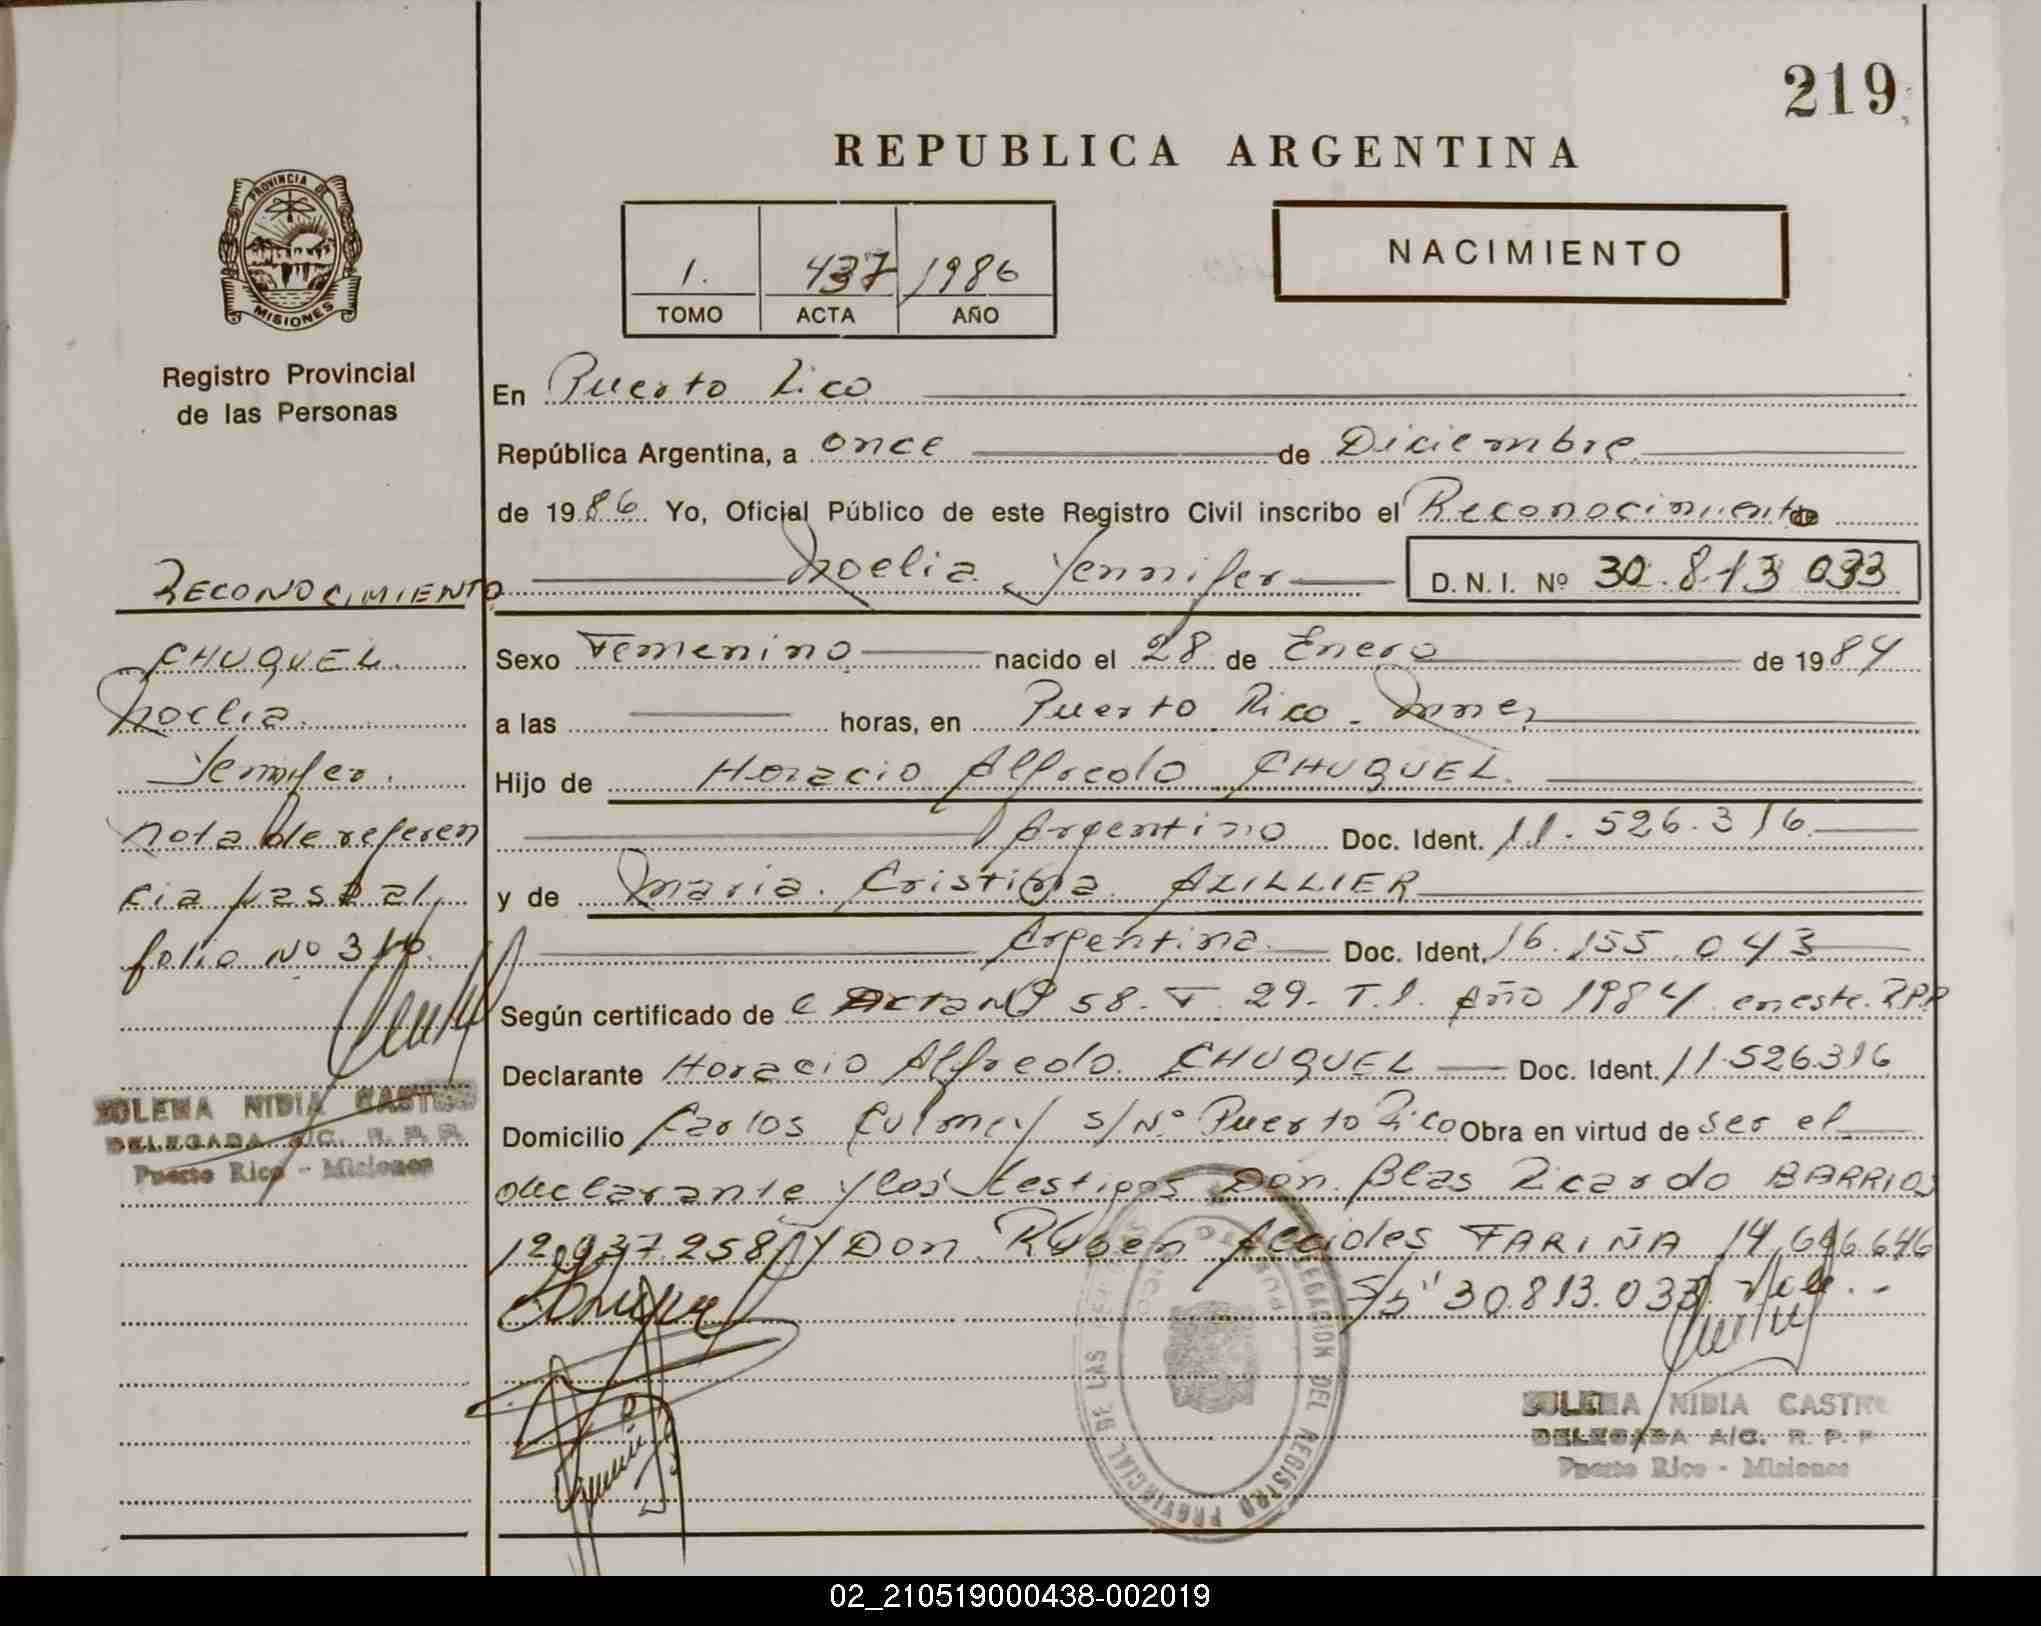 219
REPUBLICA ARGENTINA
PROVINCIA DE
MISIONES
Registro Provincial
de las Personas
NACIMIENTO
1. 437 1986
TOMO ACTA AÑO
En Puerto Rico
República Argentina, a once de Diciembre
de 1986 Yo, Oficial Público de este Registro Civil inscribo el Reconocimiento de
Noelia Yennifer D.N.I. Nº 30.813 033
Sexo Femenino nacido el 28 de Enero de 1984
a las horas, en Puerto Rico - Mnes
Hijo de Horacio Alfredo CHUQUEL
Argentino Doc. Ident. 11.526.316
y de Maria Cristina AZILLIER
Argentina Doc. Ident. 16.155.043
Según certificado de Acta Nº 58. F. 29. T.1. Año 1984 en este R.P.P
Declarante Horacio Alfredo CHUQUEL Doc. Ident. 11.526.316
Domicilio Carlos Culmey s/Nº Puerto Rico Obra en virtud de ser el
declarante y los testigos Don Blas Ricardo BARRIOS
12.937.258 y Don Ruben Alcides FARIÑA 14.696.646
S/b "30.813.033 Vale.-
RECONOCIMIENTO
CHUQUEL
Noelia
Yennifer.
Nota de referen
cia pasa al
folio Nº 310.
ZOLEMA NIDIA CASTRO
DELEGADA A/C. R. P. P.
Puerto Rico - Misiones
DELEGACION DEL REGISTRO PROVINCIAL DE LAS PERSONAS
PUERTO RICO
ZULEMA NIDIA CASTRO
DELEGADA A/C. R. P. P
Puerto Rico - Misiones
02_210519000438-002019